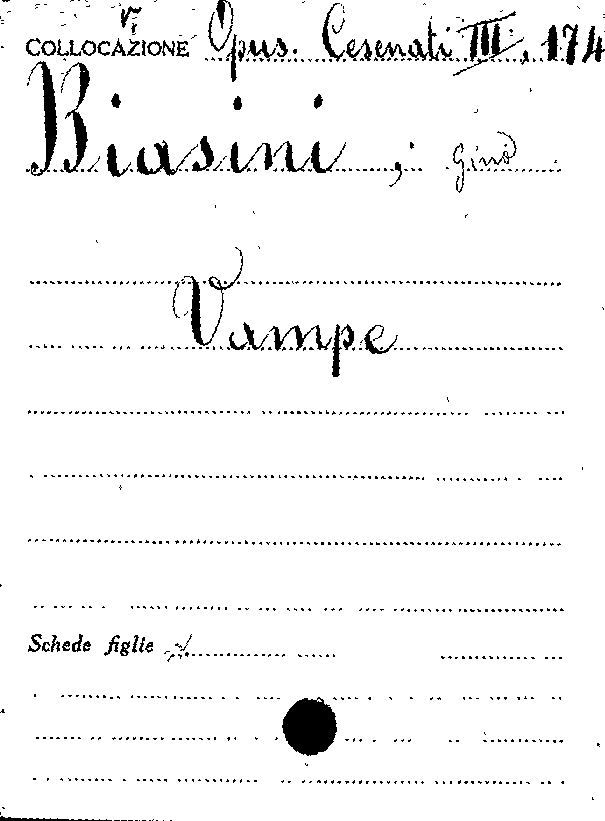 COLLOCAZIONE Opus. Cesenati III, 174
Biasini, Gino
Vampe
Schede figlie